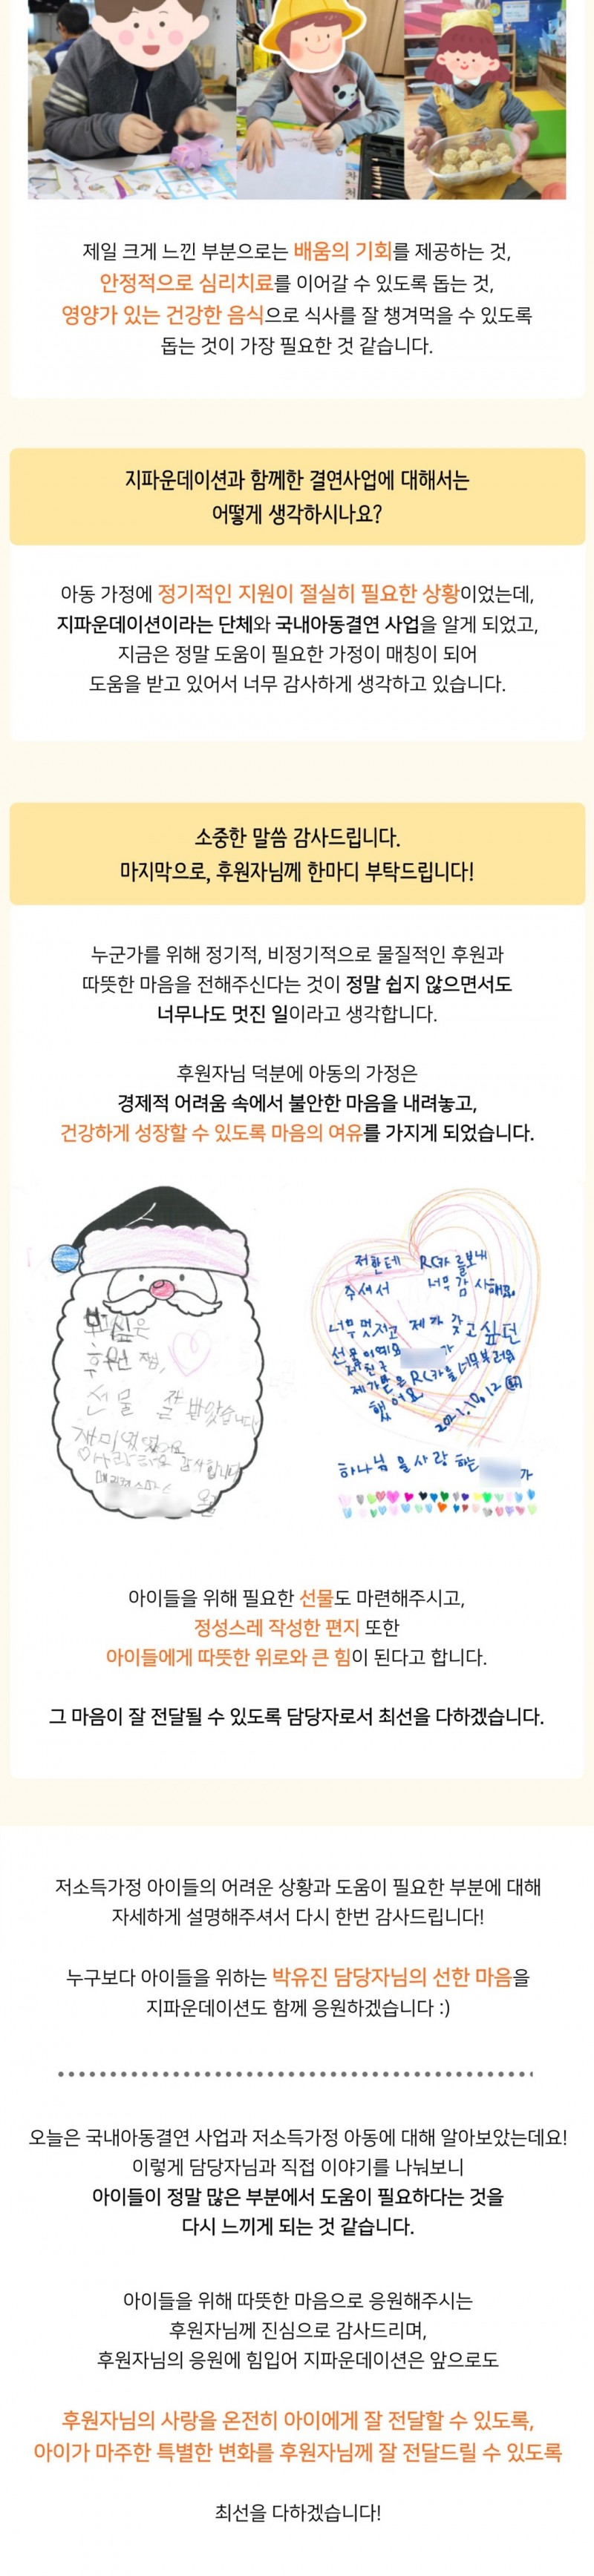 제일 크게 느낀 부분으로는 배움의 기회를 제공하는 것,
안정적으로 심리치료를 이어갈 수 있도록 돕는 것,
영양가 있는 건강한 음식으로 식사를 잘 챙겨먹을 수 있도록
돕는 것이 가장 필요한 것 같습니다.
지파운데이션과 함께한 결연사업에 대해서는
어떻게 생각하시나요?
아동 가정에 정기적인 지원이 절실히 필요한 상황이었는데,
지파운데이션이라는 단체와 국내아동결연 사업을 알게 되었고,
지금은 정말 도움이 필요한 가정이 매칭이 되어
도움을 받고 있어서 너무 감사하게 생각하고 있습니다.
소중한 말씀 감사드립니다.
마지막으로, 후원자님께 한마디 부탁드립니다!
누군가를 위해 정기적, 비정기적으로 물질적인 후원과
따뜻한 마음을 전해주신다는 것이 정말 쉽지 않으면서도
너무나도 멋진 일이라고 생각합니다.
후원자님 덕분에 아동의 가정은
경제적 어려움 속에서 불안한 마음을 내려놓고,
건강하게 성장할 수 있도록 마음의 여유를 가지게 되었습니다.
보고싶은
후원자님,
선물 잘 받았습니다
재미있었어요
사랑해요 감사합니다
메리크리스마스
저한테 RC카를 보내
주셔서 너무 감사해요.
너무 멋지고 제가 갖고 싶던
선물이에요
제 친구 가
제가 받은 RC카를 너무 부러워
했어요
2021.10.12
하나님을 사랑하는 가
아이들을 위해 필요한 선물도 마련해주시고,
정성스레 작성한 편지 또한
아이들에게 따뜻한 위로와 큰 힘이 된다고 합니다.
그 마음이 잘 전달될 수 있도록 담당자로서 최선을 다하겠습니다.
저소득가정 아이들의 어려운 상황과 도움이 필요한 부분에 대해
자세하게 설명해주셔서 다시 한번 감사드립니다!
누구보다 아이들을 위하는 박유진 담당자님의 선한 마음을
지파운데이션도 함께 응원하겠습니다 :)
오늘은 국내아동결연 사업과 저소득가정 아동에 대해 알아보았는데요!
이렇게 담당자님과 직접 이야기를 나눠보니
아이들이 정말 많은 부분에서 도움이 필요하다는 것을
다시 느끼게 되는 것 같습니다.
아이들을 위해 따뜻한 마음으로 응원해주시는
후원자님께 진심으로 감사드리며,
후원자님의 응원에 힘입어 지파운데이션은 앞으로도
후원자님의 사랑을 온전히 아이에게 잘 전달할 수 있도록,
아이가 마주한 특별한 변화를 후원자님께 잘 전달드릴 수 있도록
최선을 다하겠습니다!